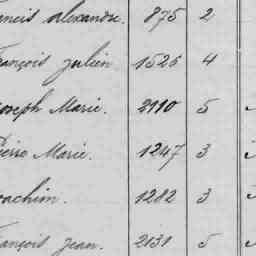 ancis alexandre. 875 2
rançois Julien 1525 4
oseph Marie. 2110 5
ierre Marie. 1247 3
oachim. 1282 3
rançois Jean. 2131 5